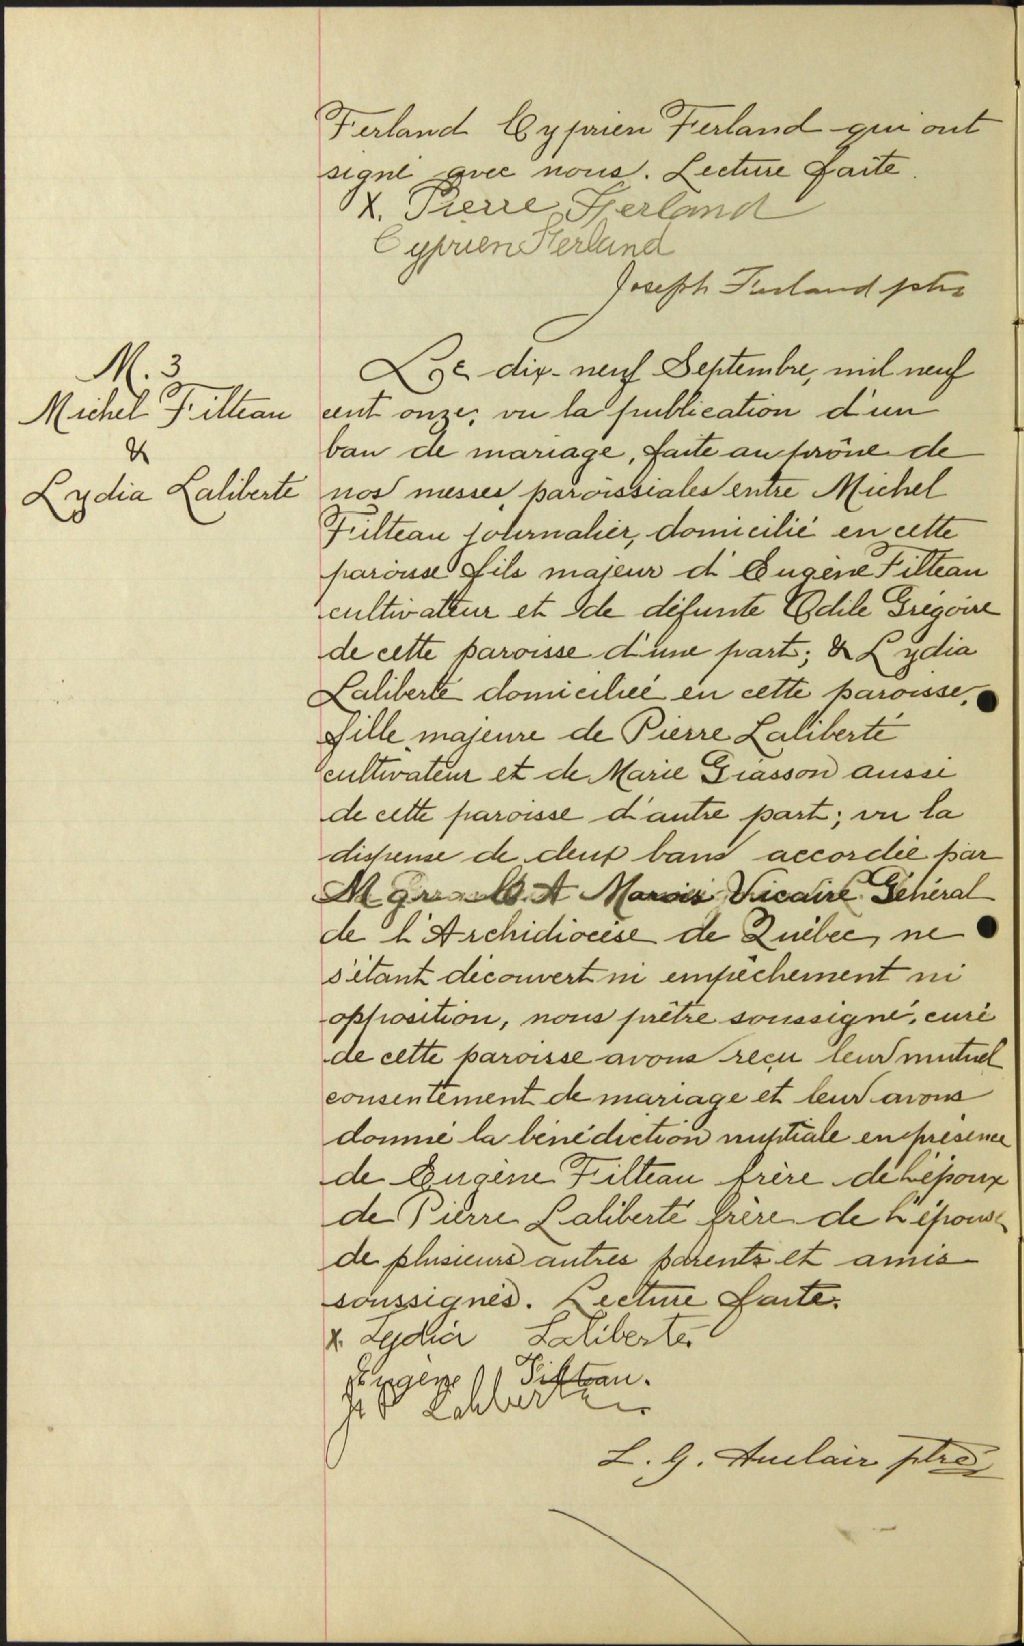 Ferland Cyprien Ferland qui ont
signé avec nous. Lecture faite.
X. Pierre Ferland
Cyprien Ferland
Joseph Ferland ptre
M. 3
Michel Filteau
&
Lydia Laliberte
Le dix-neuf Septembre, mil neuf
cent onze, vu la publication d'un
ban de mariage, faite au prône de
nos messes paroissiales entre Michel
Filteau journalier, domicilié en cette
paroisse fils majeur d'Eugène Filteau
cultivateur et de défunte Odile Grégoire
de cette paroisse d'une part; & Lydia
Laliberté domiciliée en cette paroisse,
fille majeure de Pierre Laliberté
cultivateur et de Marie Giasson aussi
de cette paroisse d'autre part; vu la
dispense de deux bans accordée par
Mgr C. A Marois Vicaire Général
de l'Archidiocèse de Québec, ne
s'étant découvert ni empêchement ni
opposition, nous prêtre soussigné, curé
de cette paroisse avons reçu leur mutuel
consentement de mariage et leur avons
donné la bénédiction nuptiale en présence
de Eugène Filteau frère de l'époux
de Pierre Laliberté frère de l'épouse
de plusieurs autres parents et amis
soussignés. Lecture faite.
x. Lydia Laliberté.
Eugène Filteau.
P Laliberté
L. G. Auclair ptre